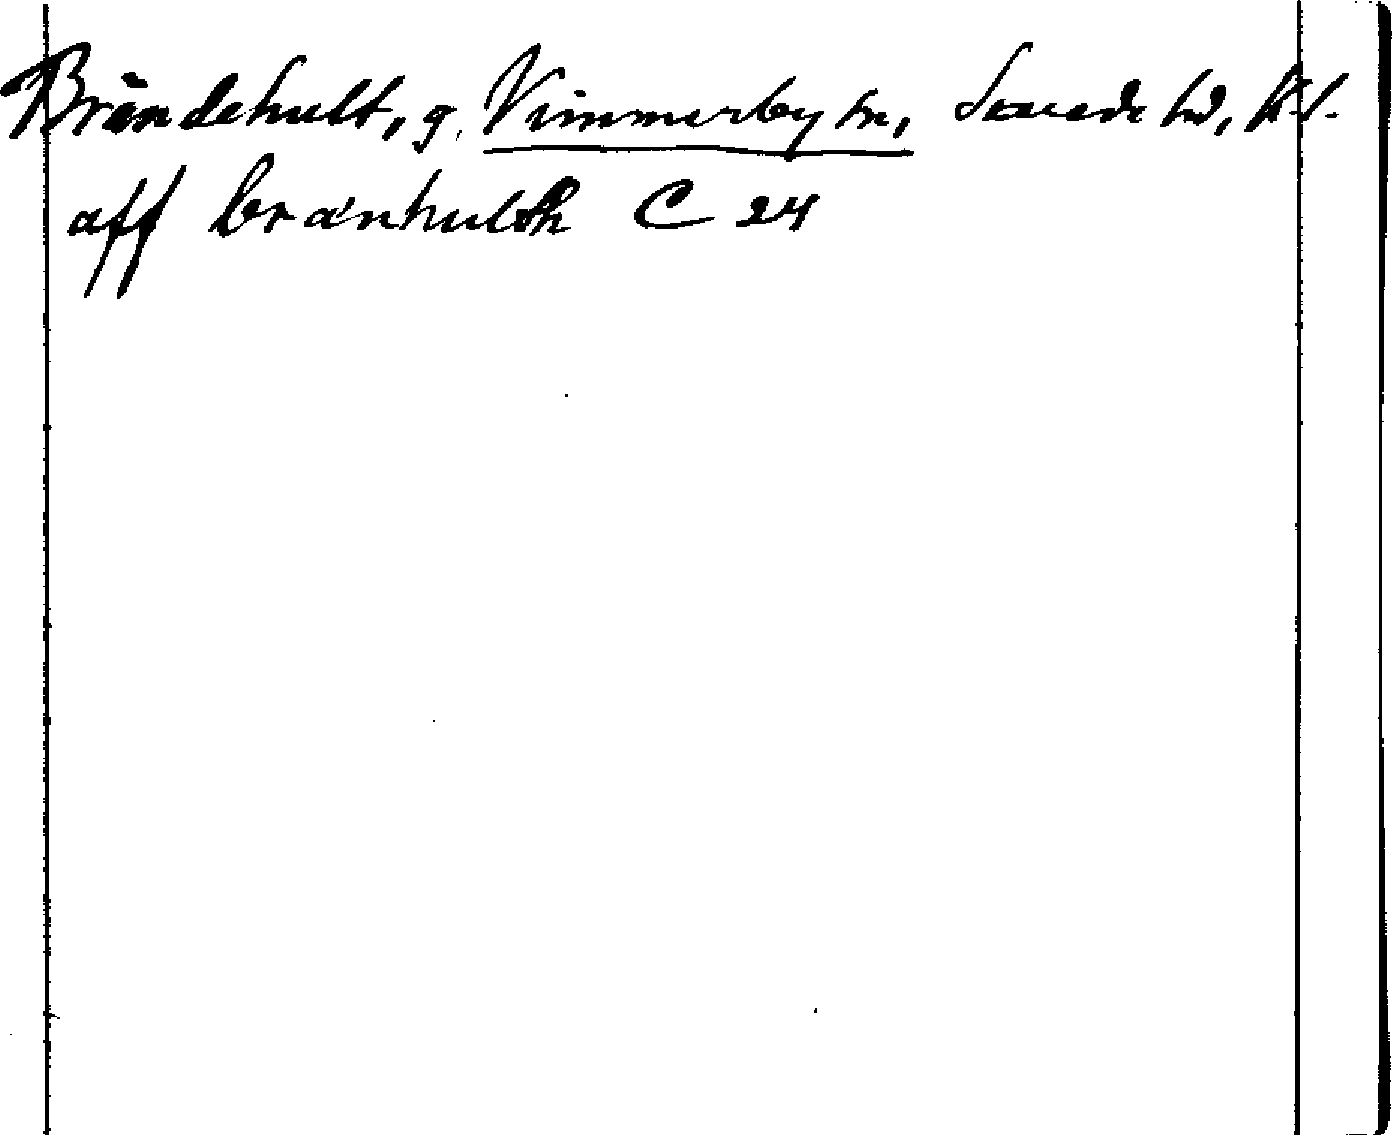 Brändehult, g, Vimmerby sn, Sevede hd, K. l.
aff brænhulth C 24